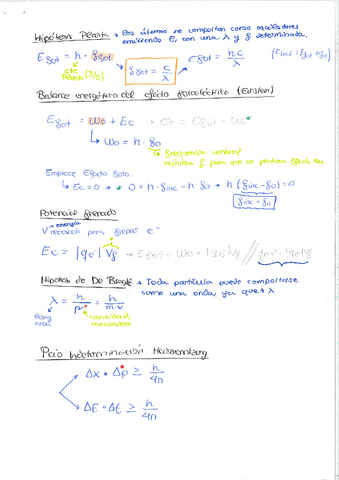 Hipótesis Planck → Los átomos se comportan como osciladores
emitiendo E, con una λ y f determinada.
E fot = h · f fot → f fot = c/λ → E fot = hc/λ
cte Planck (J/s)
Balance energético del efecto fotoeléctrico (Einstein)
E fot = Wo + Ec → Ec = E fot - Wo *
↳ Wo = h · fo
↳ frecuencia umbral
mínima f para que se produzca efecto
Empiece Efecto foto.
↳ Ec = 0 → * 0 = h · f inc - h fo → h (f inc - fo) = 0
f inc = fo
Potencial frenado
V necesario para frenar e-
Ec = |qe-| Vf → E fot = Wo + |qe-| Vf //
Hipótesis de De Broglie → Toda partícula puede comportarse
como una onda, ya que λ
λ = h/p = h/m·v
cantidad
movimiento
Indeterminación Heissemberg
Δx · Δp ≥ h/4π
ΔE · Δt ≥ h/4π